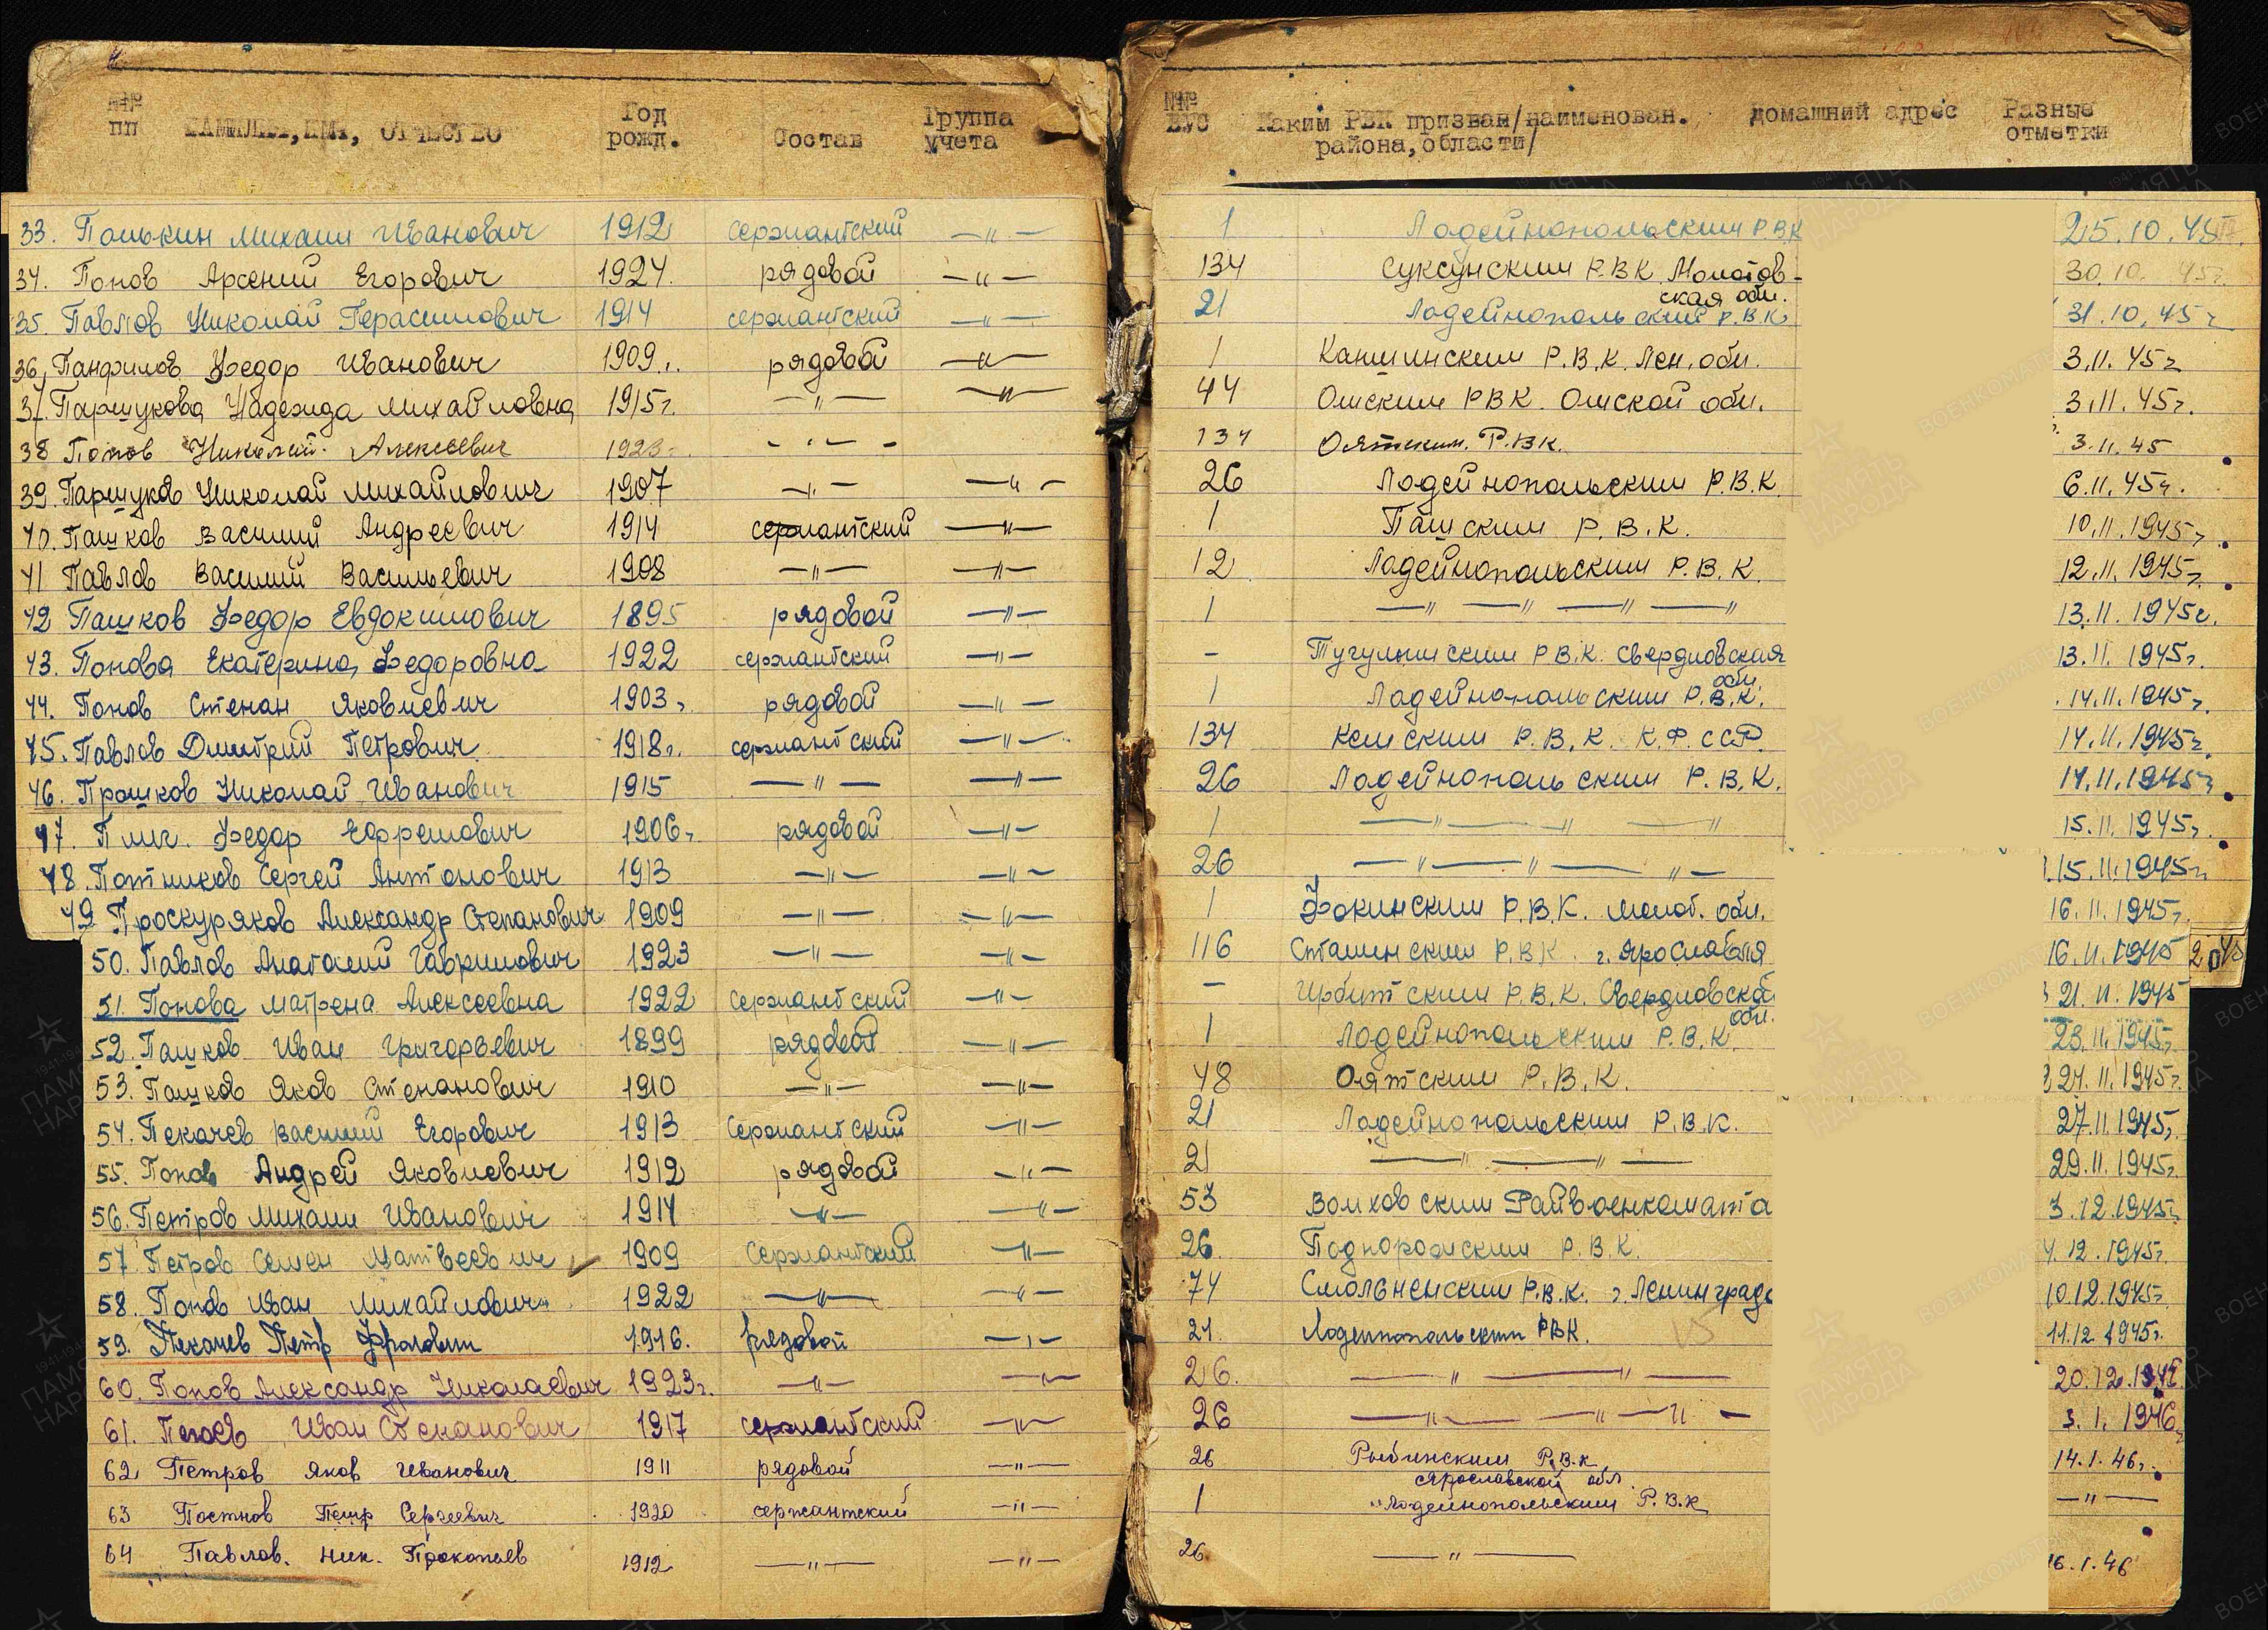 №№ пп ФАМИЛИЯ, ИМЯ, ОТЧЕСТВО Год рожд. Состав Группа учета №№ ВУС Каким РВК призван/наименован. района, области/ домашний адрес Разные отметки
33. Михаил Иванович 1912 сержантский —"— 1 Лодейнопольским Р.В.К 25.10.45
34. Попов Арсений Егорович 1924. рядовой —"— 134 Суксунским Р.В.К. Молотовская обл. 30.10. 45г.
35. Павлов Николай Герасимович 1914 сержантский —"— 21 Лодейнопольский Р.В.К. 31.10.45г
36. Панфилов Федор Иванович 1909г. рядовой —"— 1 Р.В.К. Лен. обл. 3.11.45г
37. Паршукова Надежда Михайловна 1915г. —"— —"— 44 Омским РВК. Омской обл. 3.11.45г.
38 Попов Николай Алексеевич 1923 —"— 134 Оятским Р.ВК. 3.11.45
39. Паршуков Николай Михайлович 1907 —"— —"— 26 Лодейнопольским Р.В.К. 6.11.45г.
40. Пашков Василий Андреевич 1914 сержантский —"— 1 Пашским Р.В.К. 10.11.1945г.
41 Павлов Василий Васильевич 1908 —"— —"— 12 Лодейнопольским Р.В.К. 12.11.1945г.
42 Пашков Федор Евдокимович 1895 рядовой —"— 1 —"—"—"—" 13.11.1945г.
43. Попова Екатерина Федоровна 1922 сержантский —"— – Тугулымским Р.В.К. Свердловская обл. 13.11.1945г.
44. Попов Степан Яковлевич 1903г рядовой —"— 1 Лодейнопольским Р.В.К. 14.11.1945г.
45. Павлов Дмитрий Петрович 1918г. сержантский —"— 134 Кемским Р.В.К. К.Ф.ССР. 14.11.1945г.
46. Прошков Николай Иванович 1915 —"— —"— 26 Лодейнопольским Р.В.К. 14.11.1945г
47. Федор Ефремович 1906г. рядовой —"— 1 —"—"—" 15.11.1945г.
48. Потников Сергей Антонович 1913 —"— —"— 26 —"—"—"— 15.11.1945г
49 Проскуряков Александр Степанович 1909 —"— —"— 1 Фокинским Р.В.К. Молот. обл. 16.11.1945г.
50. Павлов Анатолий Гаврилович 1923 —"— —"— 116 Сталинским Р.В.К. г. Ярославля 16.11.1945
51. Попова Матрена Алексеевна 1922 Сержантский —"— – Ирбитским Р.В.К. Свердловской обл. 21.11.1945
52. Пашков Иван Григорьевич 1899 рядовой —"— 1 Лодейнопольским Р.В.К. 23.11.1945г.
53. Пашков Яков Степанович 1910 —"— —"— 48 Оятским Р.В.К. 24.11.1945г.
54. Пекачев Василий Егорович 1913 Сержантский —"— 21 Лодейнопольским Р.В.К. 27.11.1945г.
55. Попов Андрей Яковлевич 1912 рядовой —"— 21 —"—"— 29.11.1945г.
56. Петров Михаил Иванович 1914 —"— —"— 53 Волховским Райвоенкомата 3.12.1945г.
57. Петров Семен Матвеевич 1909 Сержантский —"— 26. Подпорожским Р.В.К. 4.12.1945г.
58. Попов Иван Михайлович 1922 —"— —"— 74 Смольненским Р.В.К. г. Ленинграда 10.12.1945г.
59. Пекачев Петр Фролович 1916. рядовой —"— 21. Лодейнопольским РВК. 11.12.1945г.
60. Попов Александр Николаевич 1923г. —"— —"— 26. —"—"— 20.12.
61. Иван Степанович 1917 сержантский —"— 26 —"—"—"— 3.1.1946
62. Петров Яков Иванович 1911 рядовой —"— 26 Рыбинским Р.В.К. Ярославской обл. 14.1.46г.
63 Постнов Петр Сергеевич 1920 сержантский —"— 1 Лодейнопольским Р.В.К —"—
64 Павлов. Ник. Прокопьев 1912 —"— —"— 26 —"— 16.1.46